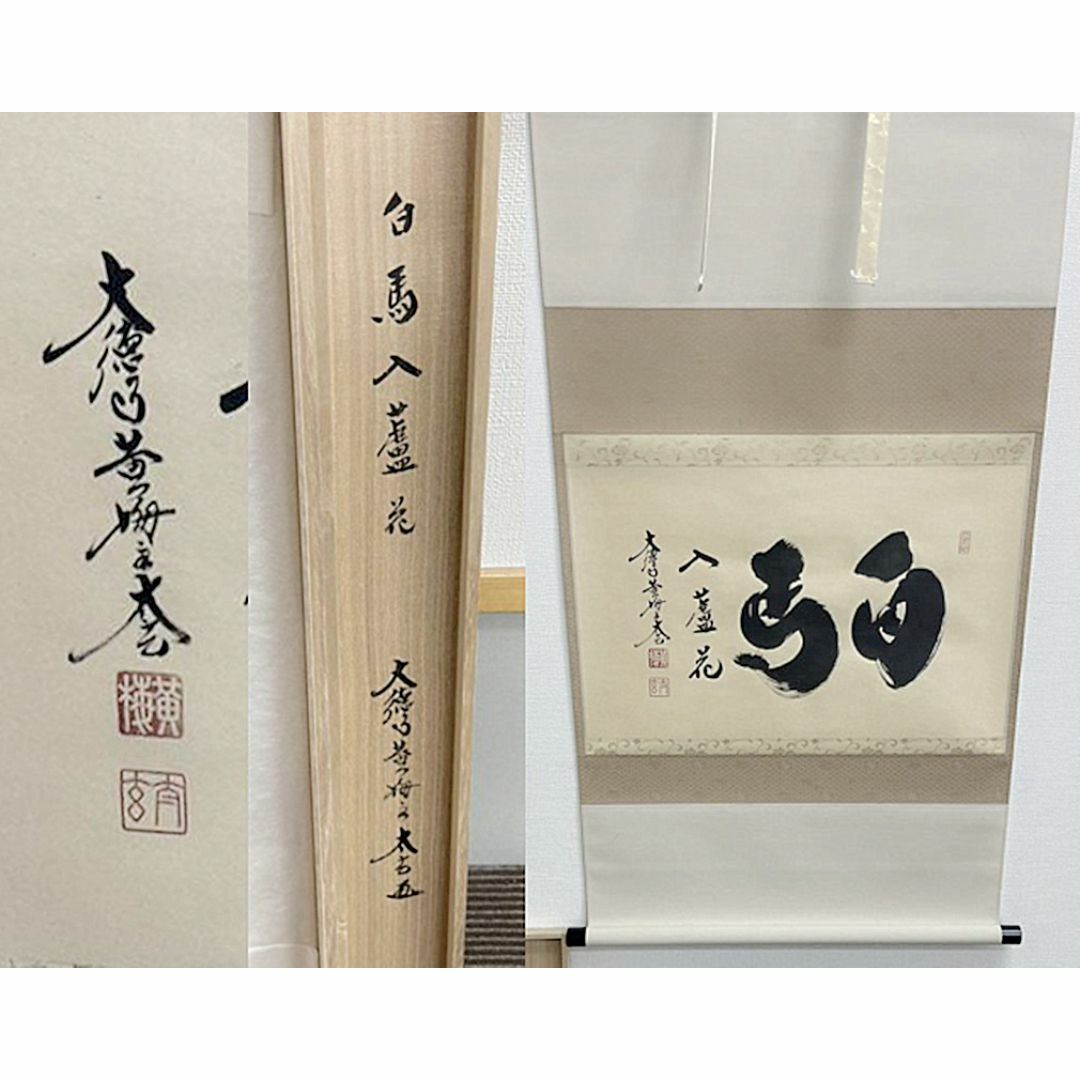 大徳黄梅主太玄
黄梅
太玄
白馬入蘆花
大徳黄梅主太玄
白
馬
入蘆花
大徳黄梅主太玄